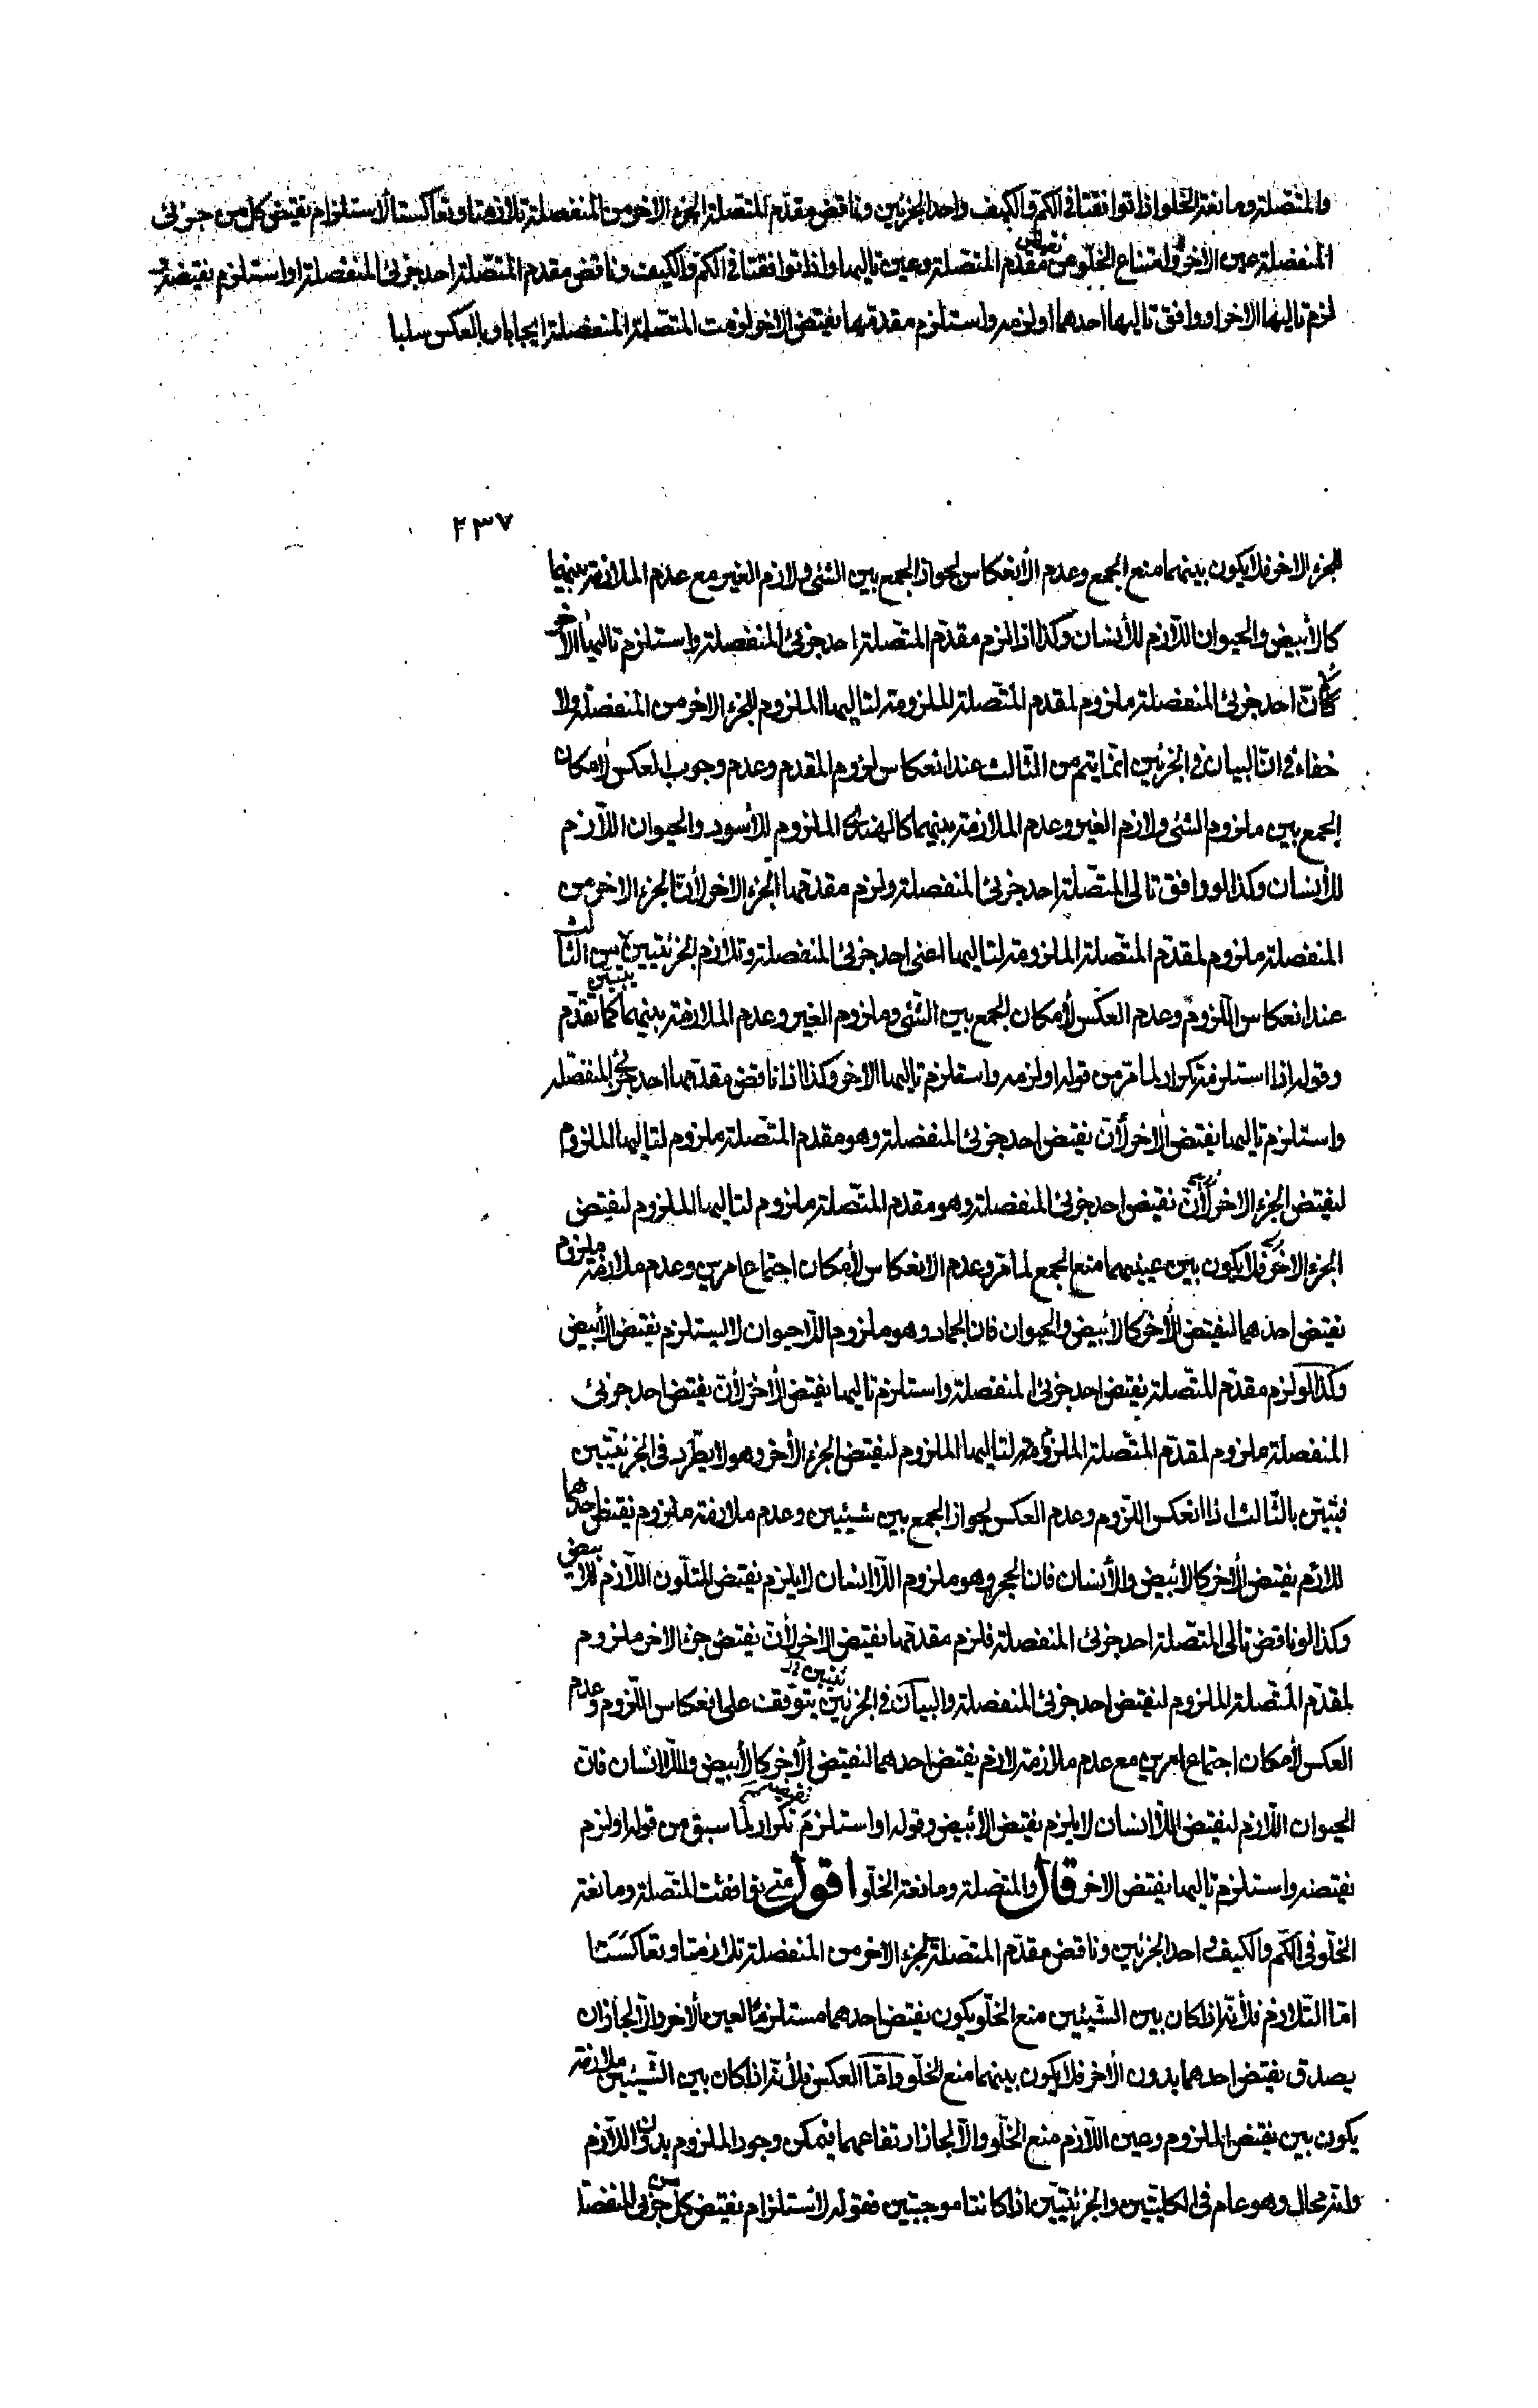 والمتصلة ومانعة الخلو اذا توافقتا فى الكم والكيف واحد الجزئين وناقض مقدم المتصلة الجزء الاخر من المنفصلة تلازمتا وتعاكستا لاستلزام نقيض كل من جزئى
المنفصلة عين الاخر وامتناع الخلو عن نقيض مقدم المتصلة وعين تاليها واذا توافقتا فى الكم والكيف وناقض مقدم المتصلة احد جزئى المنفصلة او استلزم نقيضه
لزم تاليها الاخر او وافق تاليها احدهما او لزمه واستلزم مقدمها نقيض الاخر لزمت المتصلة المنفصلة ايجابا وبالعكس سلبا
٢٣٧
الجزء الاخر فلا يكون بينهما منع الجمع وعدم الأنعكاس لجواز الجمع بين الشئ ولازم الغير مع عدم الملازمة بينهما
كالأبيض والحيوان اللازم للأنسان وكذا اذا لزم مقدم المتصلة احد جزئى المنفصلة واستلزم تاليها الأخر
لأن احد جزئى المنفصلة ملزوم لمقدم المتصلة الملزومة لتاليها الملزوم للجزء الاخر من المنفصلة ولا
خفاء فى ان البيان فى الجزئين انما يتم من الثالث عند انعكاس لزوم المقدم وعدم وجوب العكس لأمكان
الجمع بين ملزوم الشئ ولازم الغير وعدم الملازمة بينهما كالهندى الملزوم للأسود والحيوان اللازم
للأنسان وكذا لو وافق تالى المتصلة احد جزئى المنفصلة ولزم مقدمها الجزء الاخر لأن الجزء الاخر من
المنفصلة ملزوم لمقدم المتصلة الملزومة لتاليها اعنى احد جزئى المنفصلة وتلازم الجزئيتين من الثالث
عند انعكاس اللزوم وعدم العكس لأمكان الجمع بين الشئ وملزوم الغير وعدم الملازمة بينهما كما تقدم
وقوله اذا استلزمه تكرار لما مر من قوله او لزمه واستلزم تاليها الاخر وكذا اذا ناقض مقدمها احد جزئى المنفصلة
واستلزم تاليها نقيض الاخر لأن نقيض احد جزئى المنفصلة وهو مقدم المتصلة ملزوم لتاليها الملزوم
لنقيض الجزء الاخر لأن نقيض احد جزئى المنفصلة وهو مقدم المتصلة ملزوم لتاليها الملزوم لنقيض
الجزء الاخر فلا يكون بين عينيهما منع الجمع لما مر وعدم الانعكاس لأمكان اجتماع امرين وعدم ملازمة ملزوم
نقيض احدهما لنقيض الأخر كالابيض والحيوان فان الجماد وهو ملزوم اللاحيوان لا يستلزم نقيض الأبيض
وكذا لو لزم مقدم المتصلة نقيض احد جزئى المنفصلة واستلزم تاليها نقيض الأخر لأن نقيض احد جزئى
المنفصلة ملزوم لمقدم المتصلة الملزومة لتاليها الملزوم لنقيض الجزء الأخر وهو لا يطرد فى الجزئيتين
فتبين بالثالث اذا انعكس اللزوم وعدم العكس لجواز الجمع بين شيئين وعدم ملازمة ملزوم نقيض احدهما
للازم نقيض الأخر كالابيض والأنسان فان الحجر وهو ملزوم اللاانسان لا يلزم نقيض المتلون اللازم للابيض
وكذا لو ناقض تالى المتصلة احد جزئى المنفصلة فلزم مقدمها نقيض الاخر لأن نقيض جزء الاخر ملزوم
لمقدم المتصلة الملزوم لنقيض احد جزئى المنفصلة والبيان فى الجزئين يتوقف على انعكاس اللزوم وعدم
العكس لأمكان اجتماع امرين مع عدم ملازمة لازم نقيض احدهما لنقيض الأخر كالأبيض واللاانسان فان
الحيوان اللازم لنقيض اللاانسان لا يلزم نقيض الابيض وقوله او استلزم نقيضه تكرار لما سبق من قوله او لزم
نقيضه واستلزم تاليها نقيض الاخر قال والمتصلة ومانعة الخلو اقول متى توافقت المتصلة ومانعة
الخلو فى الكم والكيف واحد الجزئين وناقض مقدم المتصلة الجزء الاخر من المنفصلة تلازمتا وتعاكستا
اما التلازم فلأنه اذا كان بين الشيئين منع الخلو يكون نقيض احدهما مستلزما لعين الأخر والا لجاز ان
يصدق نقيض احدهما بدون الأخر فلا يكون بينهما منع الخلو واما العكس فلأنه اذا كان بين الشيئين ملازمة
يكون بين نقيض الملزوم وعين اللازم منع الخلو والا لجاز ارتفاعهما فيمكن وجود الملزوم بدون اللازم
وانه محال وهو عام فى الكليتين والجزئيتين اذا كانتا موجبتين فقوله لاستلزام نقيض كل من جزئى المنفصلة